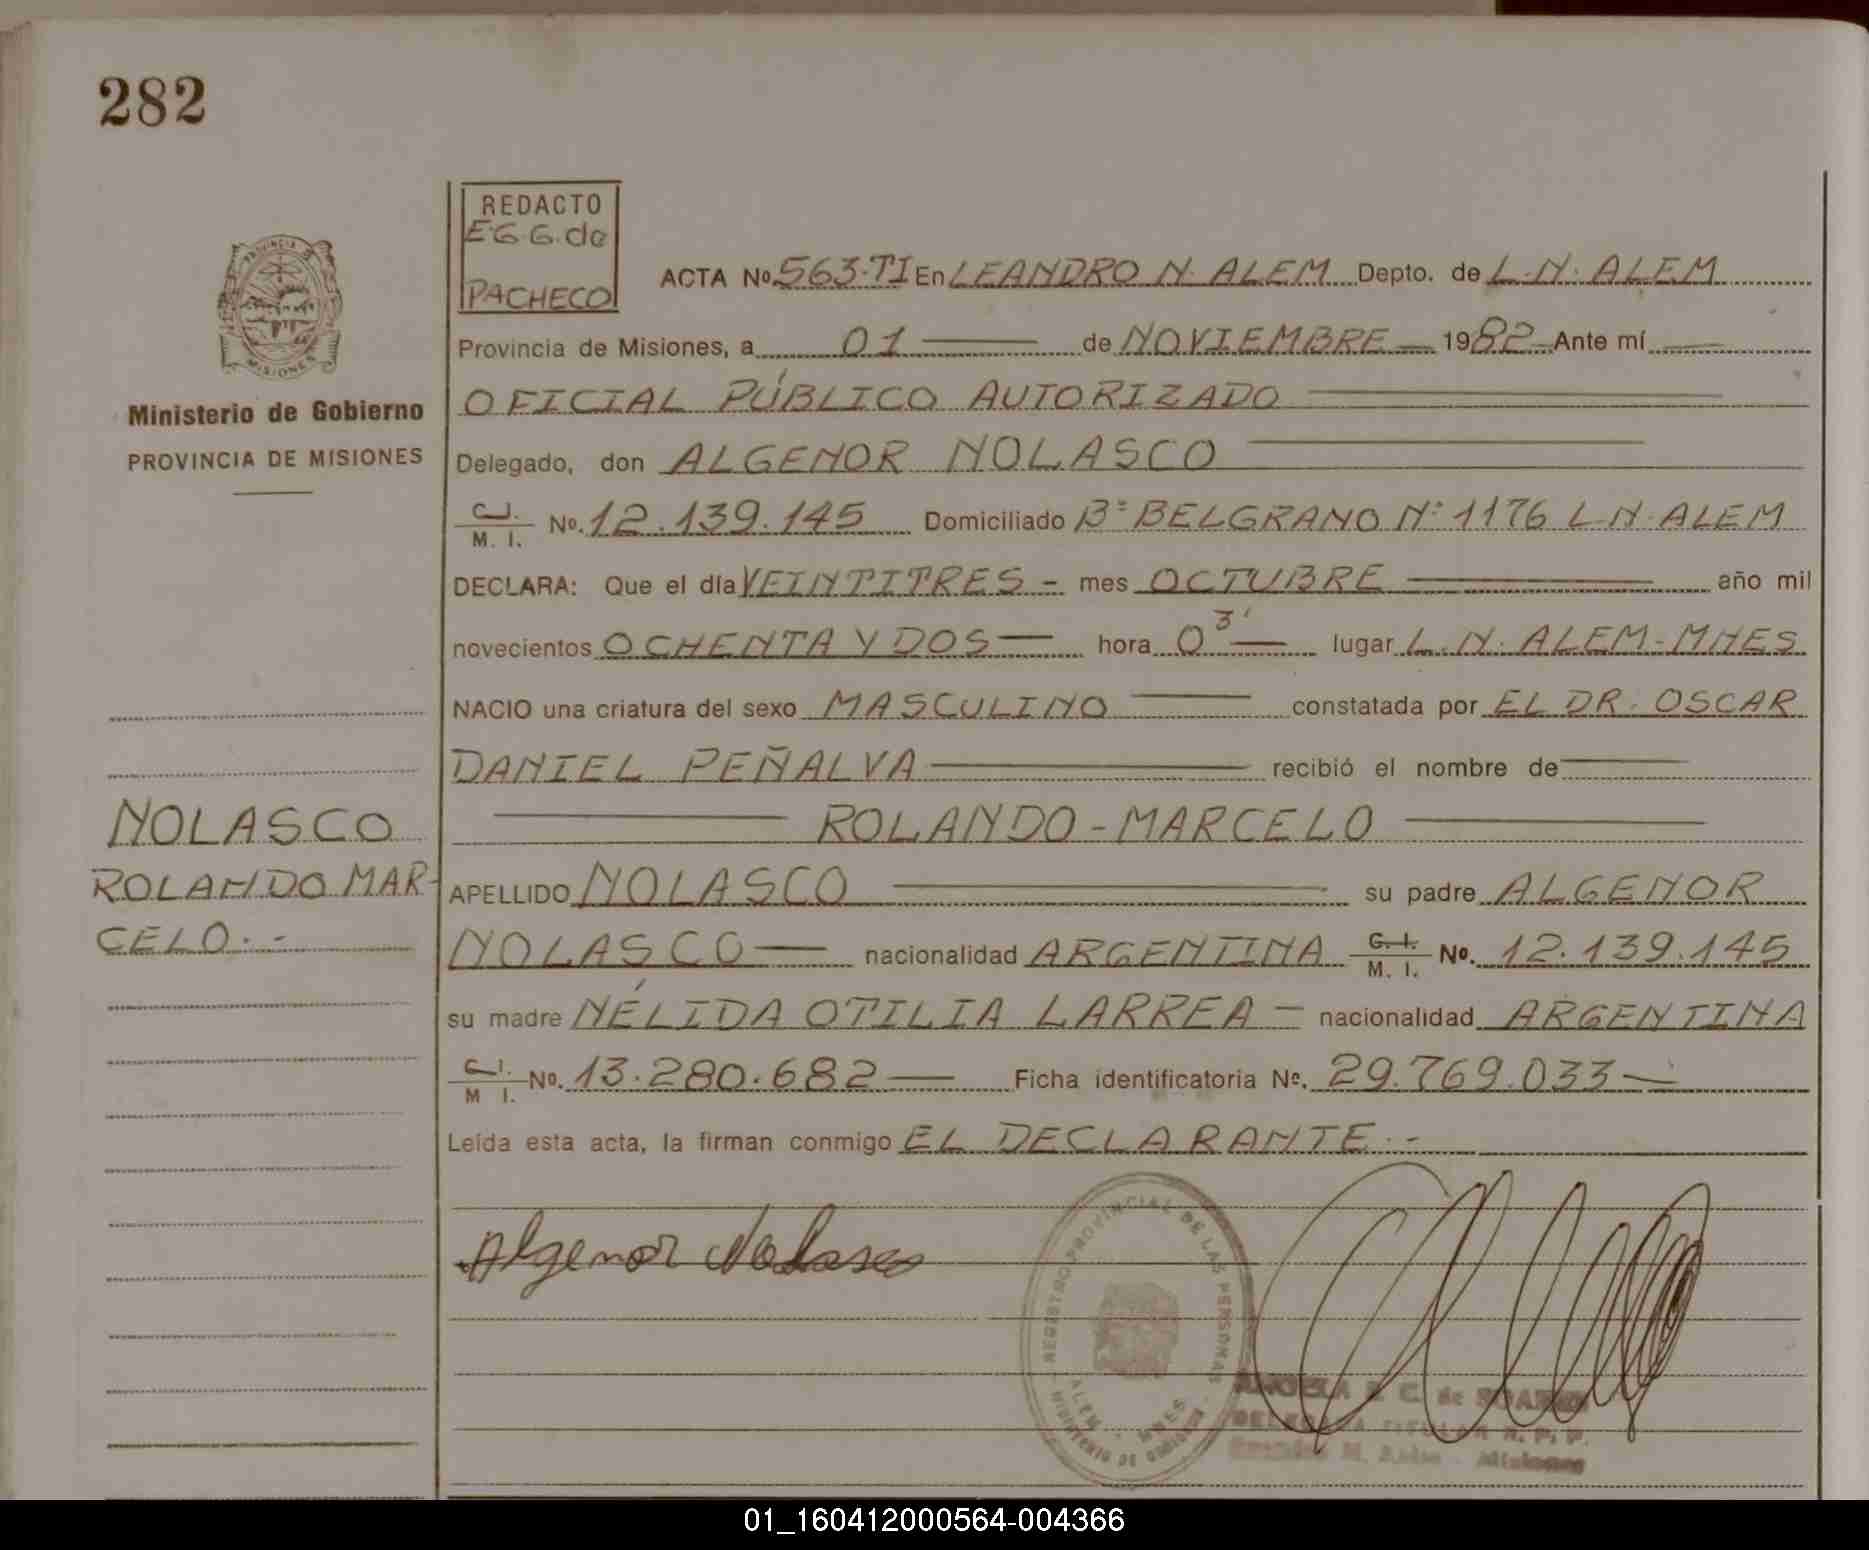 282
REDACTO
E.G.G. de
PACHECO
ACTA Nº 563-TI En LEANDRO N. ALEM Depto. de L.N. ALEM
Provincia de Misiones, a 01 de NOVIEMBRE 1982 Ante mí
OFICIAL PÚBLICO AUTORIZADO
Ministerio de Gobierno
PROVINCIA DE MISIONES
Delegado, don ALGENOR NOLASCO
C.I. M. I. Nº. 12.139.145 Domiciliado Bº BELGRANO Nº 1176 L.N. ALEM
DECLARA: Que el día VEINTITRES - mes OCTUBRE año mil
novecientos OCHENTA Y DOS hora 0 3' lugar L.N. ALEM-MNES
NACIO una criatura del sexo MASCULINO constatada por EL DR. OSCAR
DANIEL PEÑALVA recibió el nombre de
ROLANDO-MARCELO
NOLASCO
ROLANDO MAR-
CELO.-
APELLIDO NOLASCO su padre ALGENOR
NOLASCO nacionalidad ARGENTINA C.I. M. I. Nº. 12.139.145
su madre NÉLIDA OTILIA LARREA - nacionalidad ARGENTINA
C.I. M I. Nº. 13.280.682 Ficha identificatoria Nº. 29.769.033
Leída esta acta, la firman conmigo EL DECLARANTE.-
Algenor Nolasco
REGISTRO PROVINCIAL DE LAS PERSONAS
ALEM - MNES
MINISTERIO DE GOBIERNO
E C. de
TITULAR R. P. P.
Misiones
01_160412000564-004366